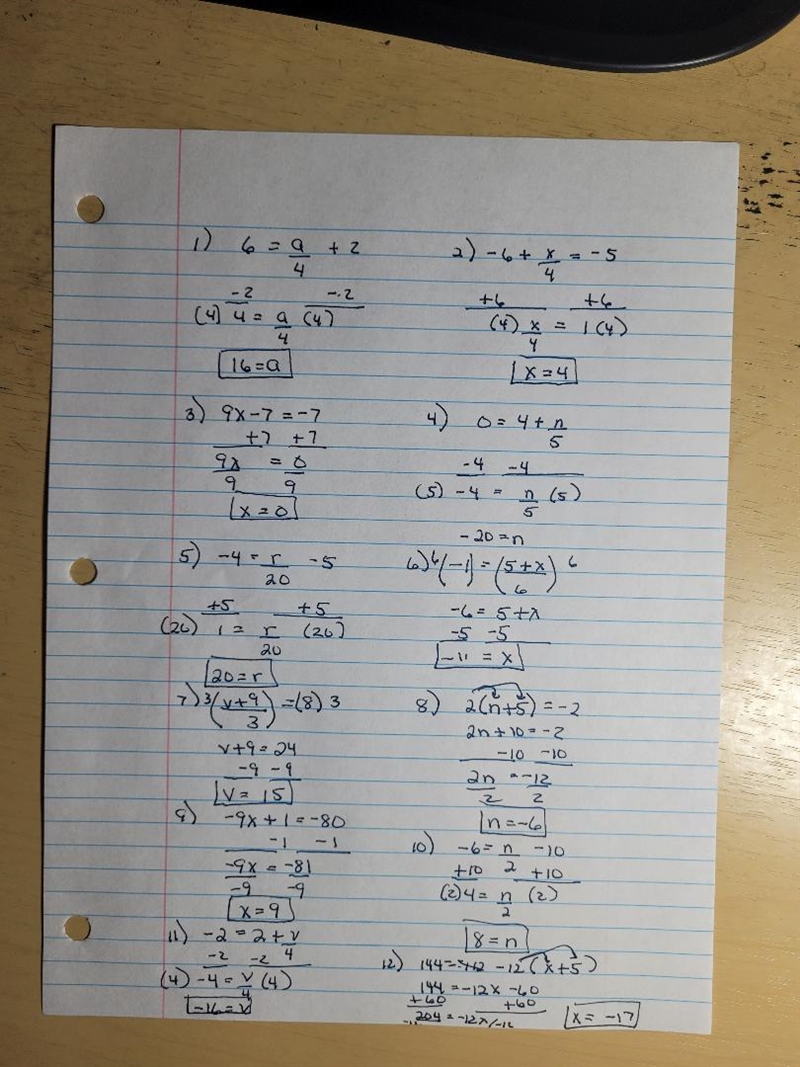 1) 6 = a/4 + 2
-2 -2
(4) 4 = a/4 (4)
16 = a
2) -6 + x/4 = -5
+6 +6
(4) x/4 = 1(4)
x = 4
3) 9x - 7 = -7
+7 +7
9x/9 = 0/9
x = 0
4) 0 = 4 + n/5
-4 -4
(5) -4 = n/5 (5)
-20 = n
5) -4 = r/20 - 5
+5 +5
(20) 1 = r/20 (20)
20 = r
6) 6(-1) = (5+x/6) 6
-6 = 5+x
-5 -5
-11 = x
7) 3(v+9/3) = (8) 3
v+9 = 24
-9 -9
v = 15
8) 2(n+5) = -2
2n+10 = -2
-10 -10
2n/2 = -12/2
n = -6
9) -9x + 1 = -80
-1 -1
-9x/-9 = -81/-9
x = 9
10) -6 = n/2 - 10
+10 +10
(2) 4 = n/2 (2)
8 = n
11) -2 = 2 + v/4
-2 -2
(4) -4 = v/4 (4)
-16 = v
12) 144 = -12(x+5)
144 = -12x - 60
+60 +60
204 = -12x/-12
x = -17